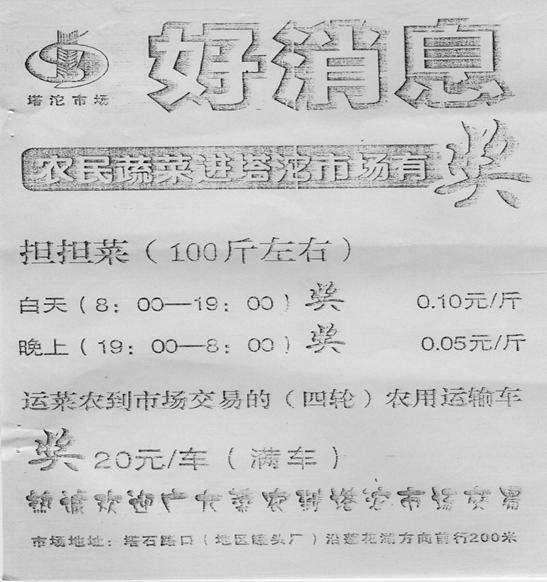 好消息
塔沱市场
农民蔬菜进塔沱市场有奖
担担菜（100斤左右）
白天（8：00—19：00）奖 0.10元/斤
晚上（19：00—8：00）奖 0.05元/斤
运菜农到市场交易的（四轮）农用运输车
奖 20元/车（满车）
热诚欢迎广大菜农到塔沱市场交易
市场地址：塔石路口（地区罐头厂）沿莲花湖方向前行200米